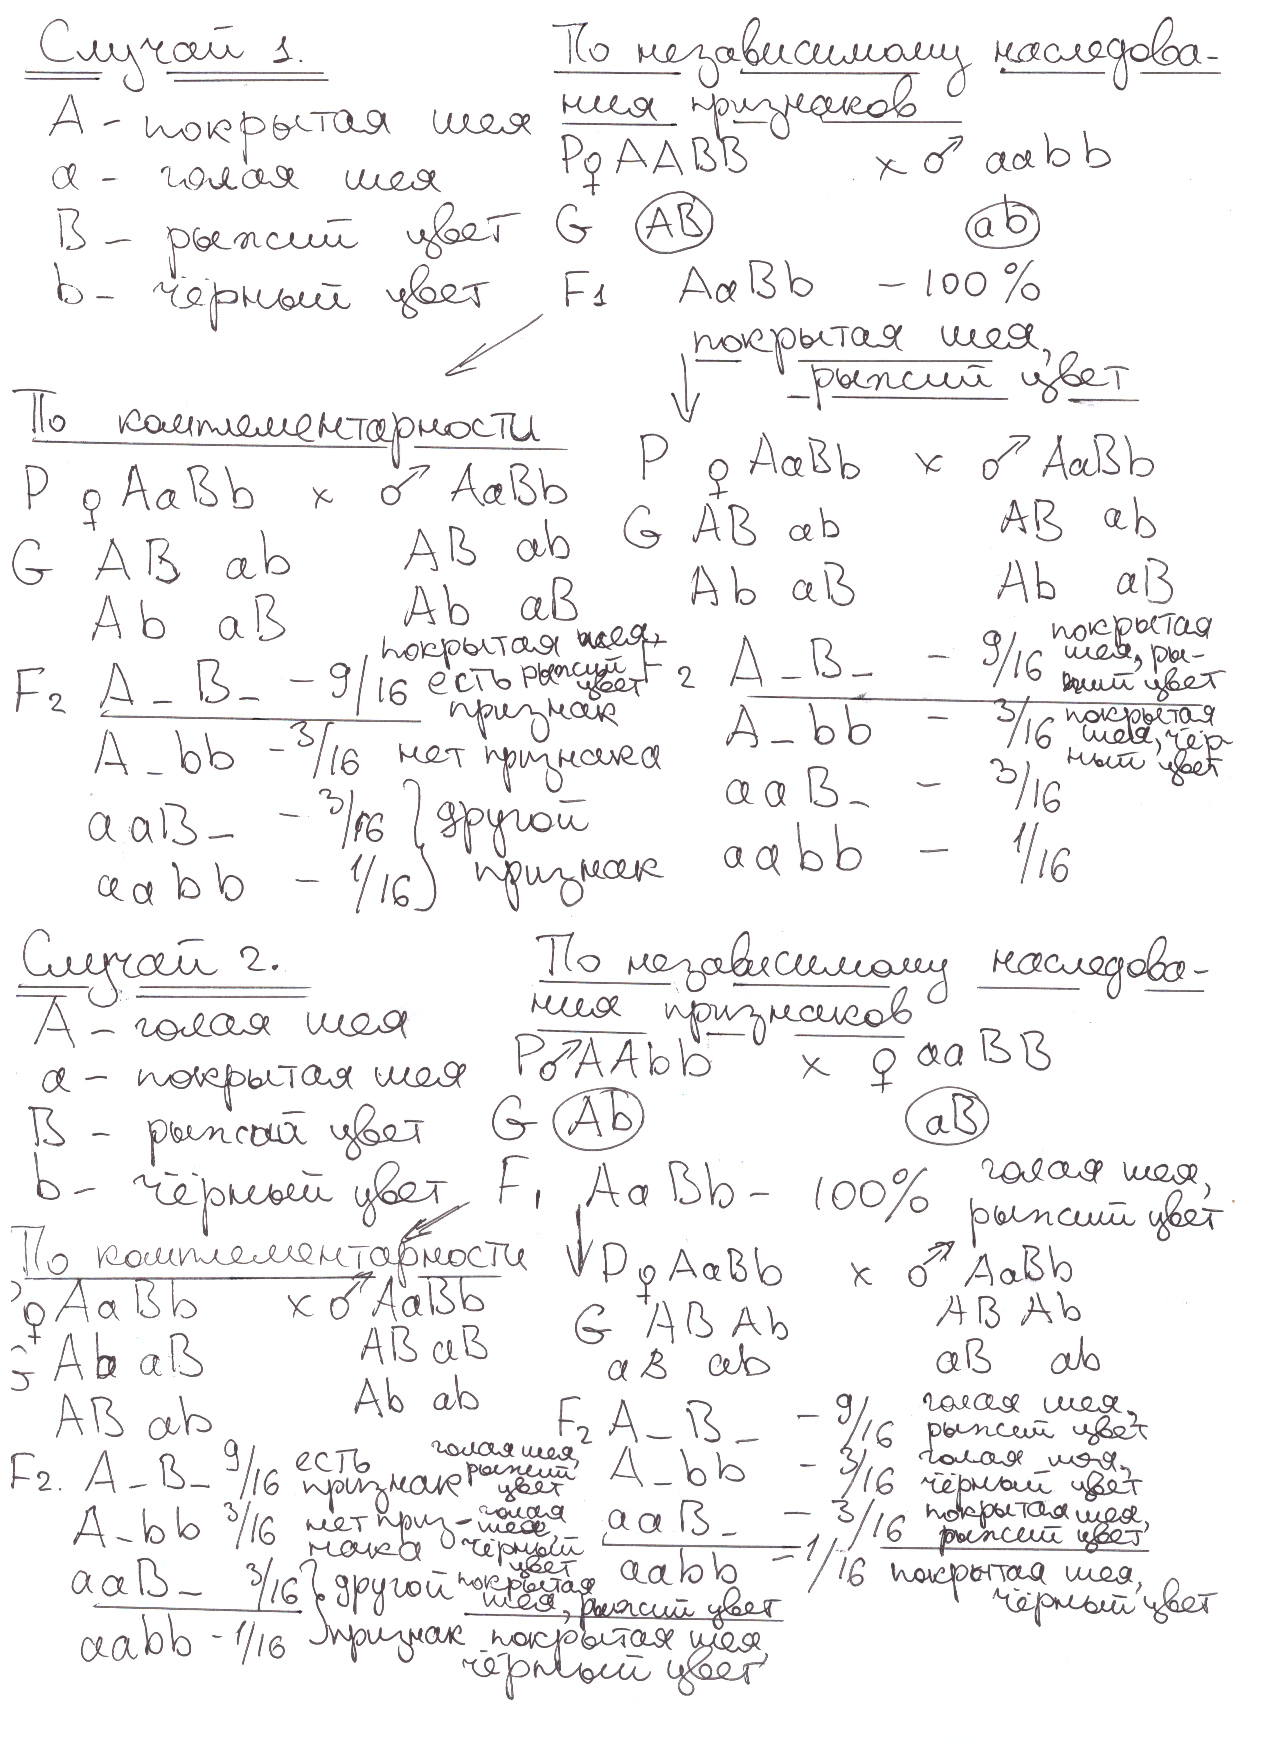 Случай 1.
А - покрытая шея
а - голая шея
В - рыжий цвет
b - чёрный цвет
По независимому наследова-
ния признаков
P♀ AABB x ♂ aabb
G AB ab
F1 AaBb - 100%
покрытая шея,
рыжий цвет
По комплементарности
P ♀ AaBb x ♂ AaBb
G AB ab AB ab
Ab aB Ab aB
F2 A_B_ - 9/16 есть признак
покрытая шея,
рыжий цвет
A_bb - 3/16 нет признака
aaB_ - 3/16 } другой
aabb - 1/16 } признак
P ♀ AaBb x ♂ AaBb
G AB ab AB ab
Ab aB Ab aB
F2 A_B_ - 9/16 покрытая
шея, ры-
жий цвет
A_bb - 3/16 покрытая
шея, чёр
ный цвет
aaB_ - 3/16
aabb - 1/16
Случай 2.
А - голая шея
а - покрытая шея
В - рыжий цвет
b - чёрный цвет
По независимому наследова-
ния признаков
P♂ AAbb x ♀ aaBB
G Ab aB
F1 AaBb - 100% голая шея,
рыжий цвет
По комплементарности
♀ AaBb x ♂ AaBb
Ab aB AB aB
AB ab Ab ab
F2. A_B_ 9/16 есть признак
голая шея,
рыжий
цвет
A_bb 3/16 нет приз-
нака
голая
шея,
чёрный
цвет
aaB_ 3/16 } другой покрытая
шея, рыжий цвет
aabb - 1/16 } признак покрытая шея,
чёрный цвет
P ♀ AaBb x ♂ AaBb
G AB Ab AB Ab
aB ab aB ab
F2 A_B_ - 9/16 голая шея,
рыжий цвет
A_bb - 3/16 голая шея,
чёрный цвет
aaB_ - 3/16 покрытая шея,
рыжий цвет
aabb - 1/16 покрытая шея,
чёрный цвет